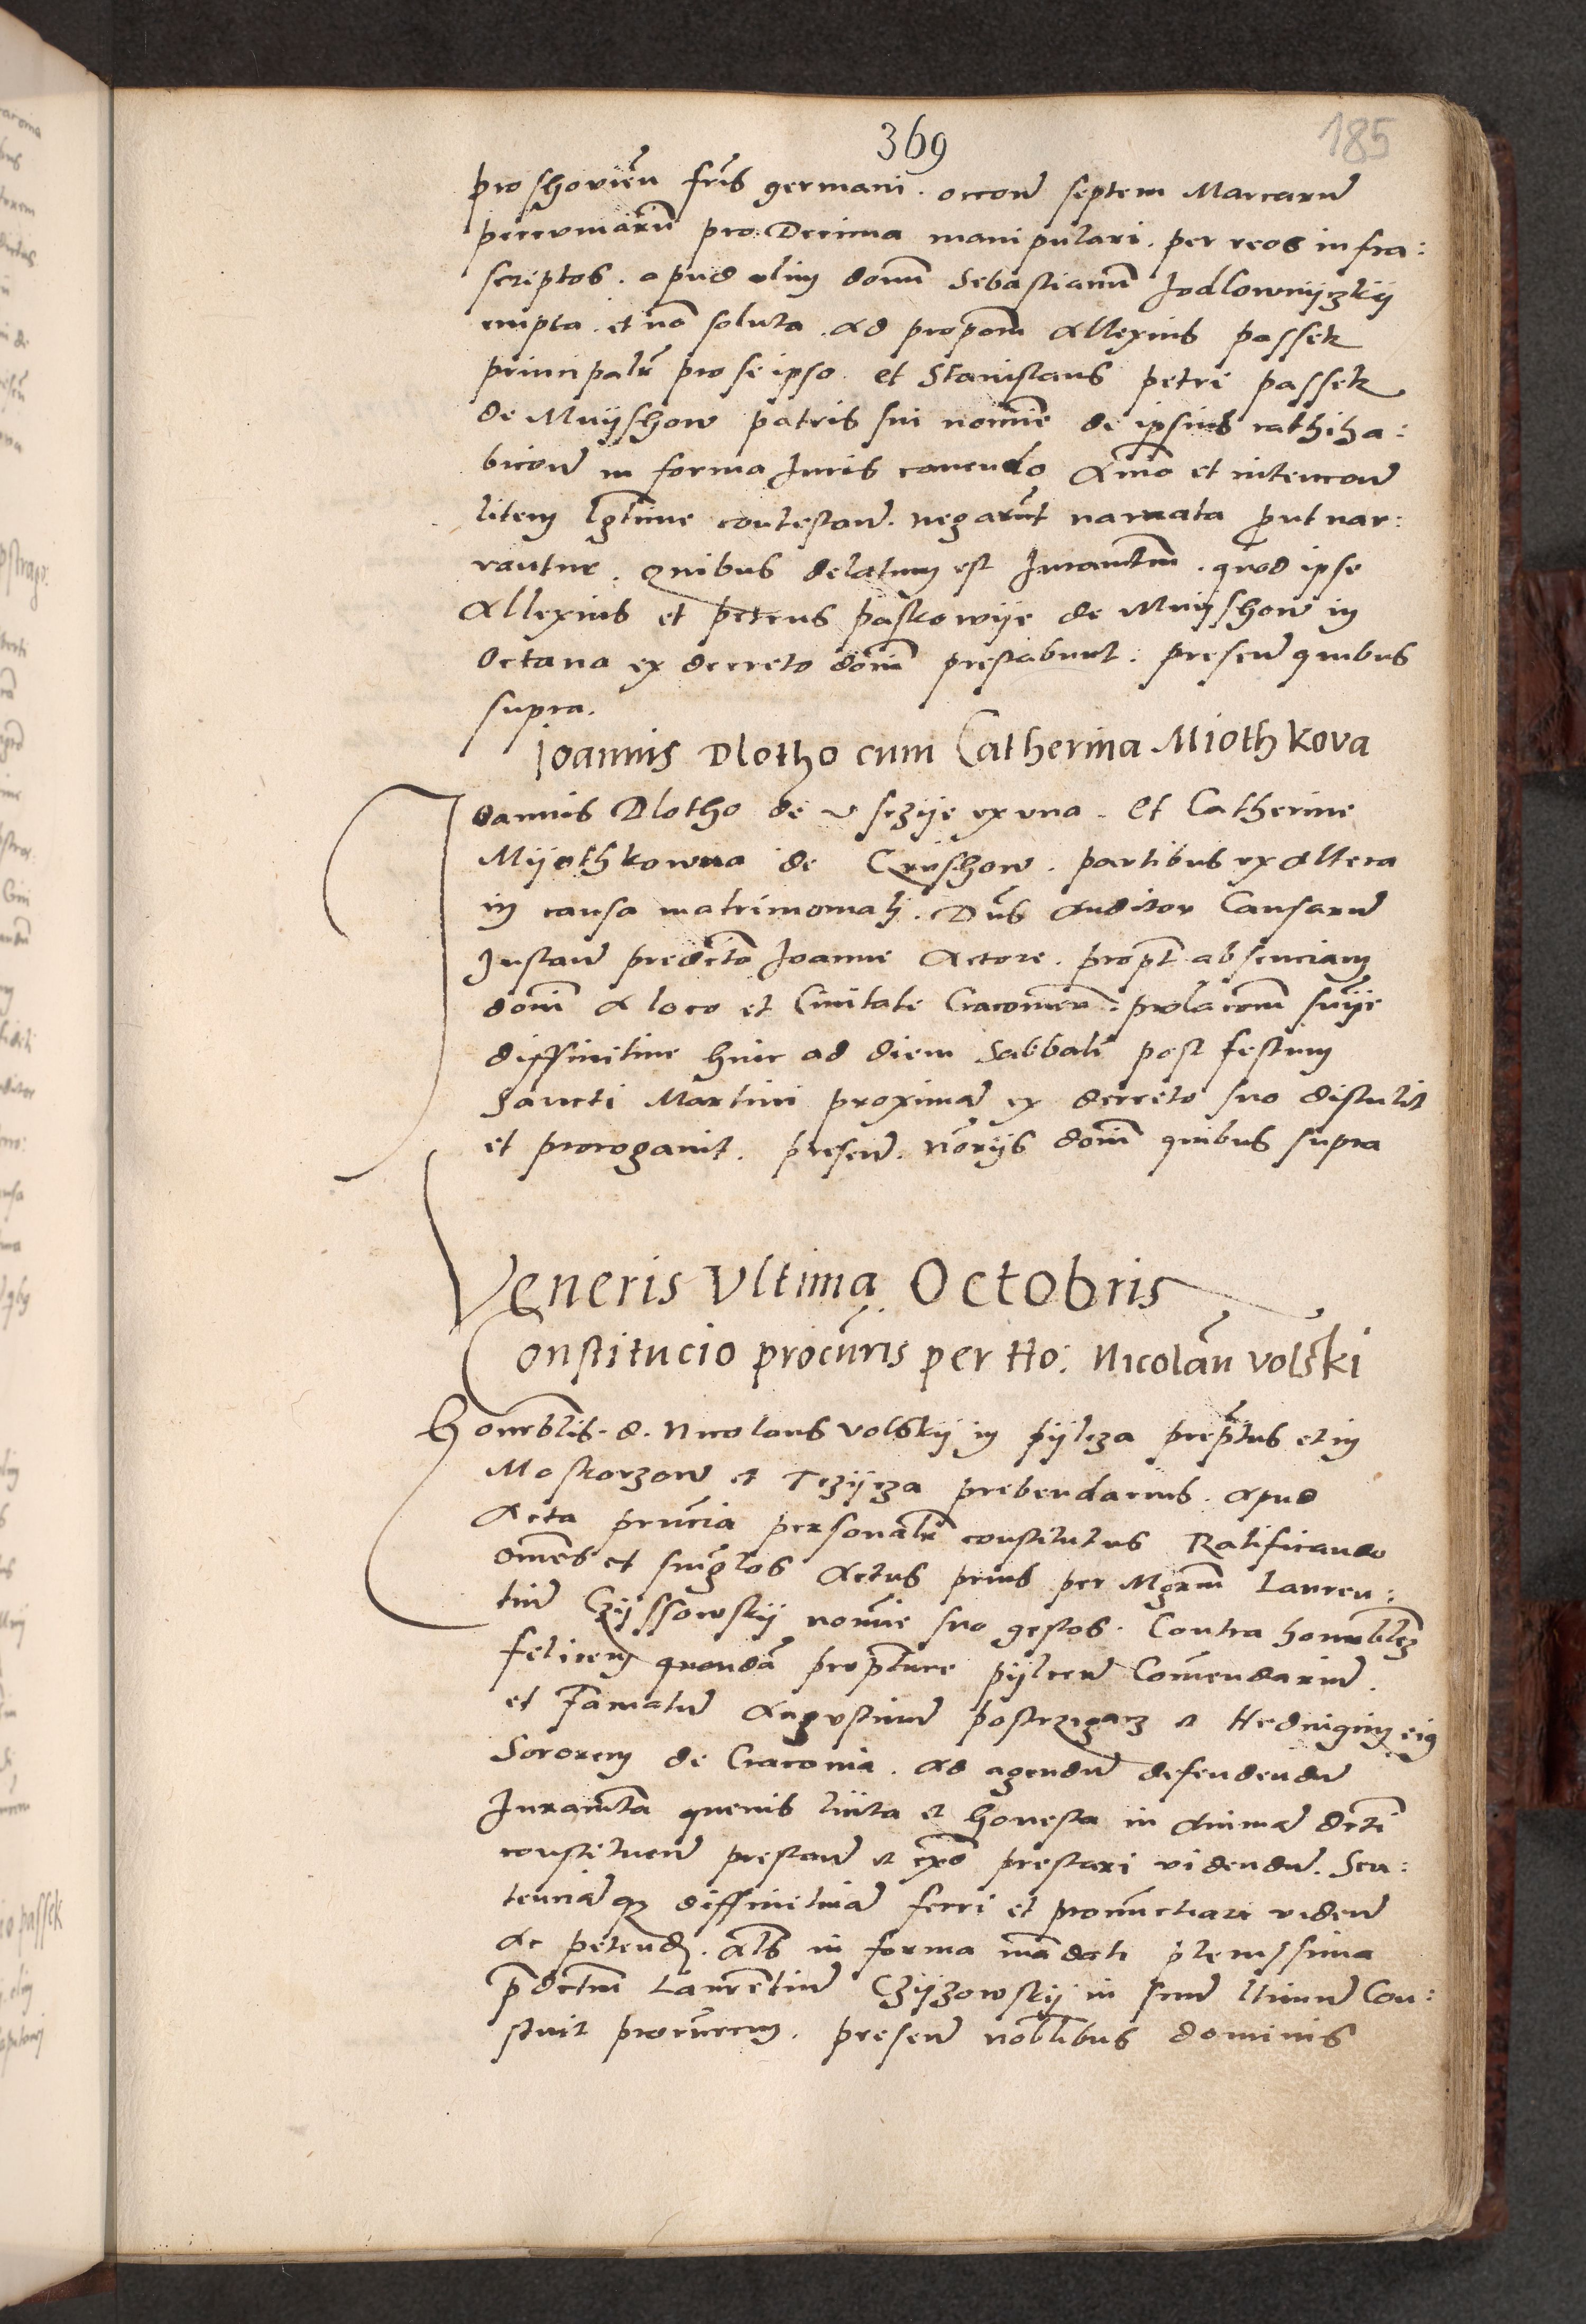 369
185
proshovien̄ fr̄is germani. occoē septem Marcarū
pecuniariū pro Decima manipulari. per reos infra:
scriptos. apud olim donū Sebastianū Jodlowniczkij
empta. et nō soluta. ad propoēm Allexius passek
principalr̄ pro se ipso. et Stanislaus petri passek
de Mnijshow patris sui noīe de ipsius rathiha:
bicoē in forma Juris cavendo Aīmo et intencoē
litem lgtime contestan̄. negarūt narrata prout nar:
rantur. Quibus delatum est Juramtum. quod ipse
Allexius et petrus paskowije de Mnijshow in
Octava ex decreto donī prestabunt. presen̄ quibus
supra.
Joannis Dlotho cum Catherina Miothkova
Joannis Dlotho de v sczije ex una. Et Catherine
Mijothkowna de Crzischow. partibus ex altera
in causa matrimoniali. Dn̄s Auditor Causarū
Instan̄ predicto Joanne Actore. propt̄ absenciam
donī a loco et Civitate Cracovien̄. prolacoēm snīe
diffinitive huic ad diem Sabbati post festum
Sancti Martini proximā ex decreto suo distulit
et prorogavit. presen̄. norijs donī quibus supra
Veneris Ultima Octobris
Constitucio procūris per Ho: Nicolāu volski
Honorblis. d. Nicolaus volskij in pijlcza prep̄tus et in
Moskorzow et Tczijcza prebendarius. Apud
Acta prn̄cia personalr̄ constitutus Ratificando
om̄es et singlos Actus prius per Mgrum Lauren:
tiū Czijssowskij noīe suo gestos. Contra honorblez
felicem quondā prep̄ture pijlcen̄ Com̄endariū.
et Famatū Augustinū postrzigacz et Hedvigim eius
Sororem de Cracovia. ad agendū defendendū
Juramta quevis licita et honesta in animā dcti
constituen̄ prestan̄ et exo prestari videndū. Sen:
tenciāq diffinitivā ferri et pronūctiari viden̄
ac petend. Als in forma mādati plenissima
p̄dctum Laurentiū Czijzowskij in suū ltimū Con:
stuit procūrem. presen̄ noblibus dominis